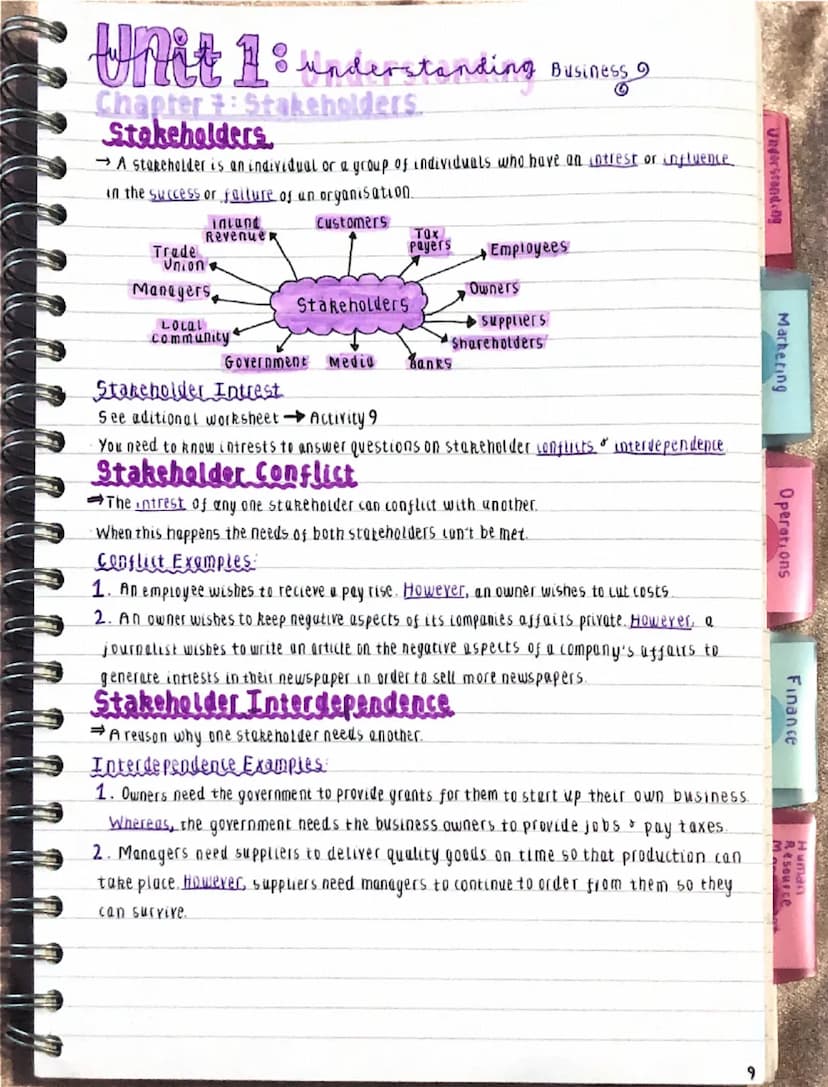 Unit 1: Understanding Business
Chapter 7: Stakeholders
Stakeholders
→ A stakeholder is an individual or a group of individuals who have an intrest or influence
in the success or failure of an organisation.
Inland
Revenue
Customers
Tax
payers
Employees
Trade
Union
Managers
Stakeholders
Owners
Suppliers
Local
community
Shareholders
Government
Media
Banks
Stakeholder Intrest
See aditional worksheet → Activity 9
You need to know intrests to answer questions on stakeholder conflicts & interdependence
Stakeholder Conflict
⇒ The intrest of any one stakeholder can conflict with another.
When this happens the needs of both stakeholders can't be met.
Conflict Examples:
1. An employee wishes to recieve a pay rise. However, an owner wishes to cut costs.
2. An owner wishes to keep negative aspects of its companies affairs private. However, a
journalist wishes to write an article on the negative aspects of a company's affairs to
generate intrests in their newspaper in order to sell more newspapers.
Stakeholder Interdependence
⇒ A reason why one stakeholder needs another.
Interdependence Examples:
1. Owners need the government to provide grants for them to start up their own business.
Whereas, the government needs the business owners to provide jobs & pay taxes.
2. Managers need suppliers to deliver quality goods on time so that production can
take place. However, suppliers need managers to continue to order from them so they
can survive.
9
Understanding
Marketing
Operations
Finance
Human
Resource